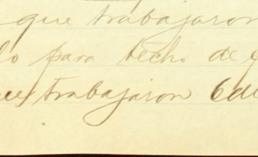 que trabajaron
para techo de
trabajaron 6